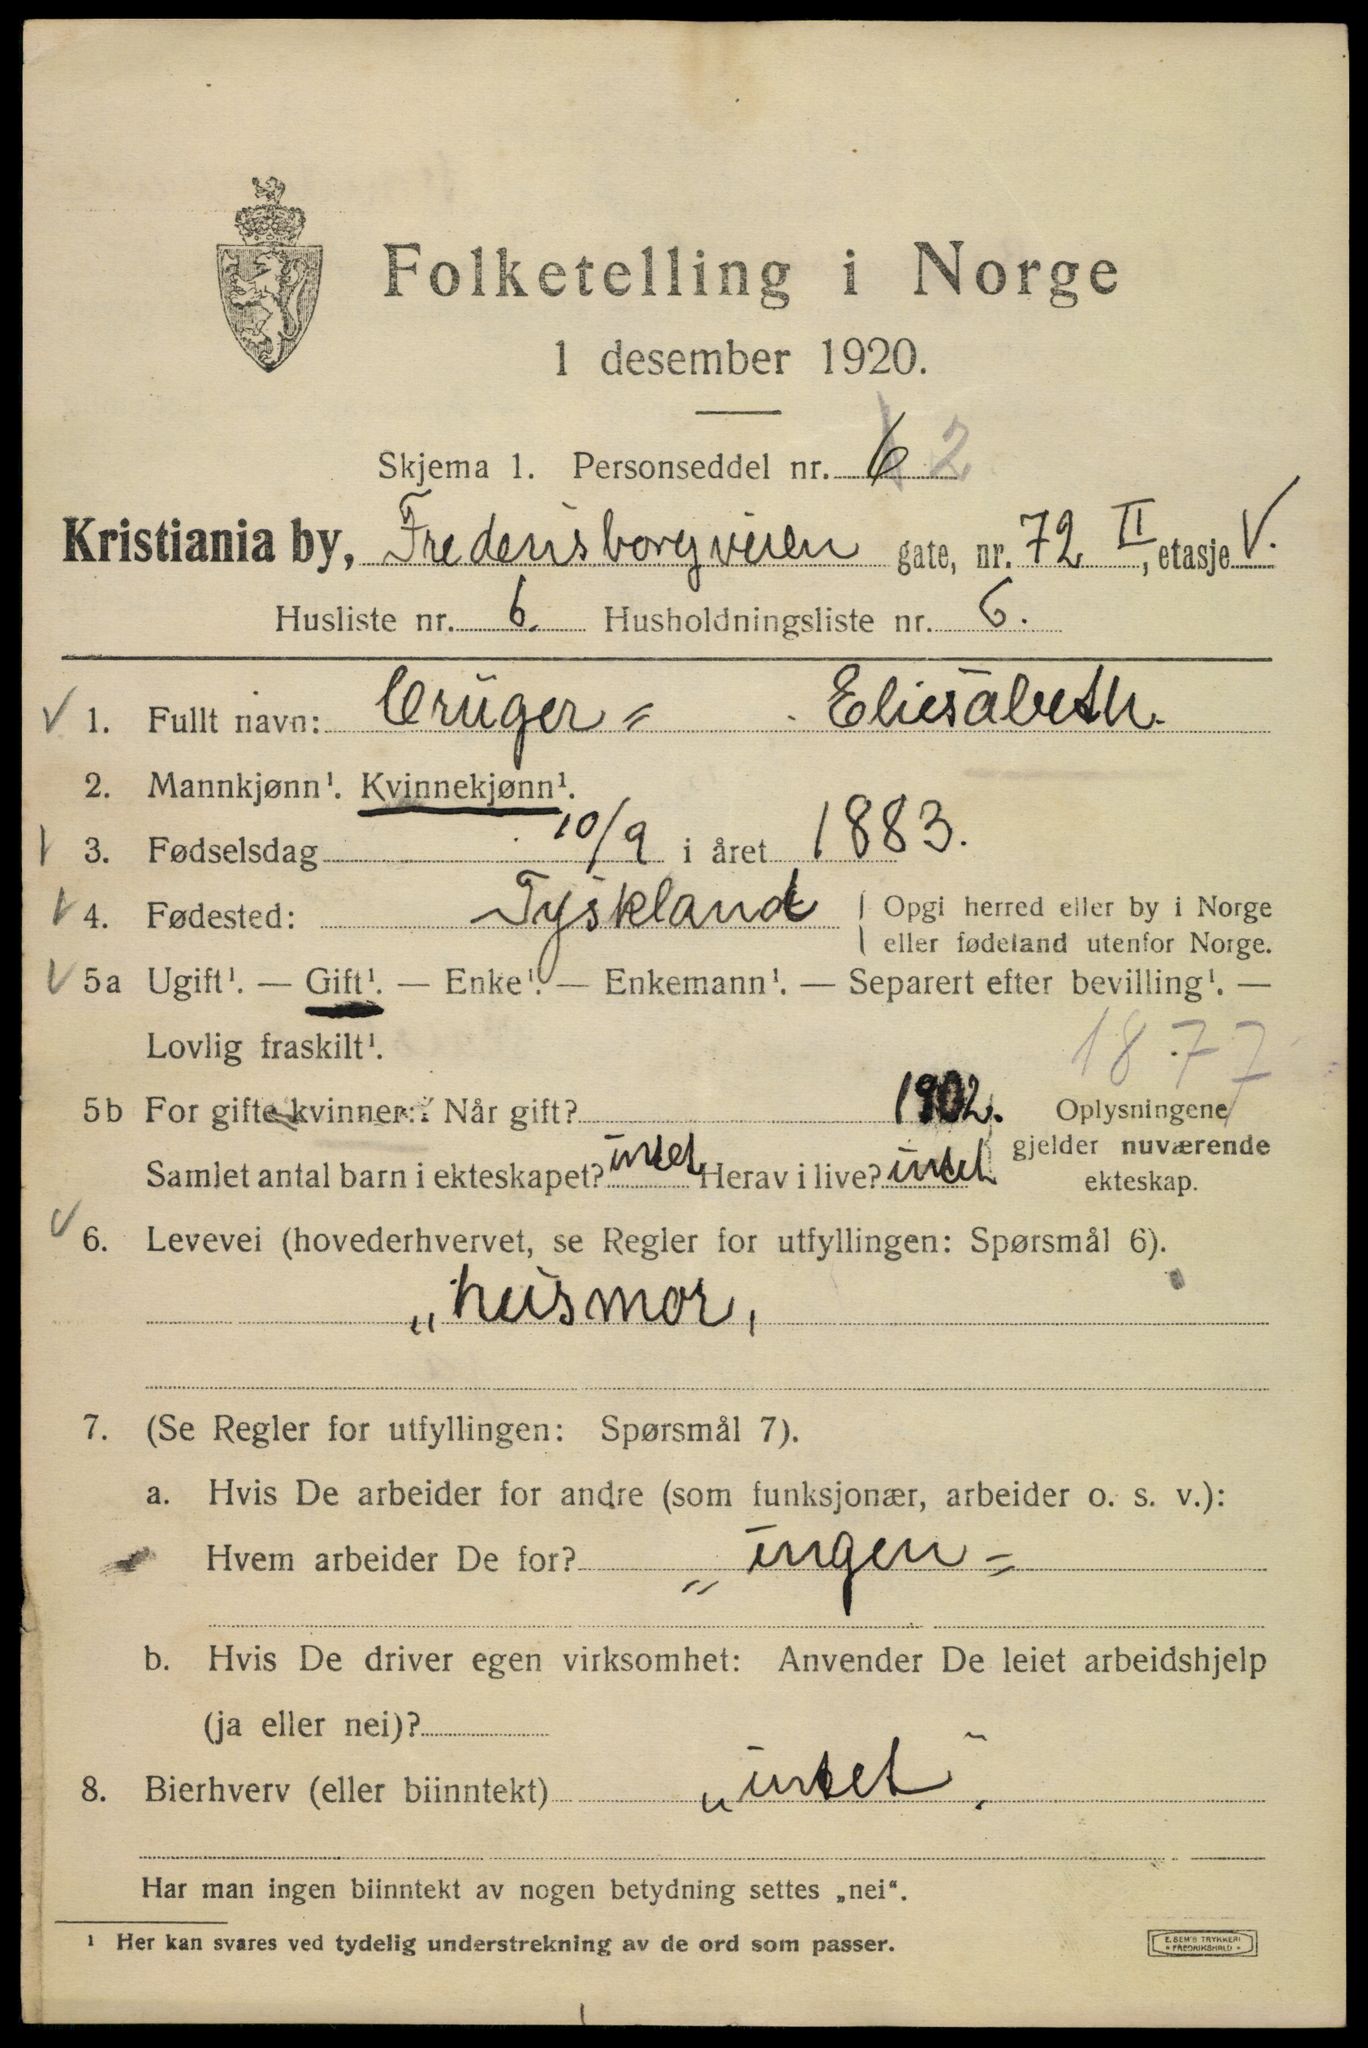 Folketelling i Norge
1 desember 1920.
Skjema 1. Personseddel nr. 6 2
Kristiania by, Frederisborgveien gate, nr. 72 II, etasje V.
Husliste nr. 6. Husholdningsliste nr. 6.
1. Fullt navn: Crüger = Eliesabeth.
2. Mannkjønn¹. Kvinnekjønn¹.
3. Fødselsdag 10/9 i året 1883.
4. Fødested: Tyskland Opgi herred eller by i Norge
eller fødeland utenfor Norge.
5a Ugift¹. — Gift¹. — Enke¹. — Enkemann¹. — Separert efter bevilling¹. —
Lovlig fraskilt¹.
1877
5b For gifte kvinner: Når gift? 1902. Oplysningene
gjelder nuværende
Samlet antal barn i ekteskapet? intet Herav i live? intet
ekteskap.
6. Levevei (hovederhvervet, se Regler for utfyllingen: Spørsmål 6).
„husmor,
7. (Se Regler for utfyllingen: Spørsmål 7).
a. Hvis De arbeider for andre (som funksjonær, arbeider o. s. v.):
Hvem arbeider De for? „ingen =
b. Hvis De driver egen virksomhet: Anvender De leiet arbeidshjelp
(ja eller nei)?
8. Bierhverv (eller biinntekt) „intet".
Har man ingen biinntekt av nogen betydning settes „nei“.
¹ Her kan svares ved tydelig understrekning av de ord som passer.
E. SEM'S TRYKKERI
* FREDRIKSHALD *